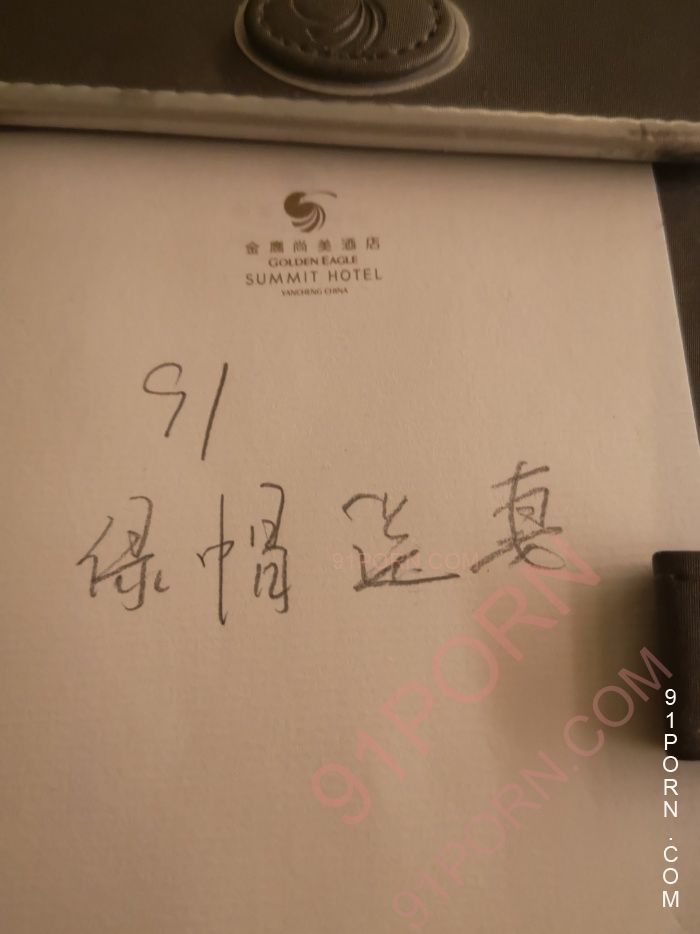 金鹰尚美酒店
GOLDEN EAGLE
SUMMIT HOTEL
YANCHENG CHINA
91
绿帽
91PORN.COM
91PORN
91PORN.COM
91PORN.COM